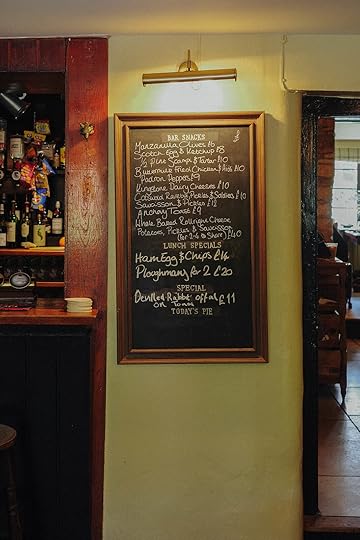 BAR SNACKS
Manzanilla Olives £6
Scotch Egg & Ketchup £8
½ Pint Scampi & Tartar £10
Buttermilk Fried Chicken £10
Padron Peppers £9
Kingstone Dairy Cheeses £10
Cotswold Pickles £10
Saucisson & Pickles £12
Anchovy Toast £9
Whole Baked Rollright Cheese
Potatoes, Pickles & Saucisson
(for 2-6 to Share) £40
LUNCH SPECIALS
Ham Egg & Chips £16
Ploughmans for 2 £20
SPECIAL
Devilled Rabbit offal £11
on Toast
TODAY'S PIE